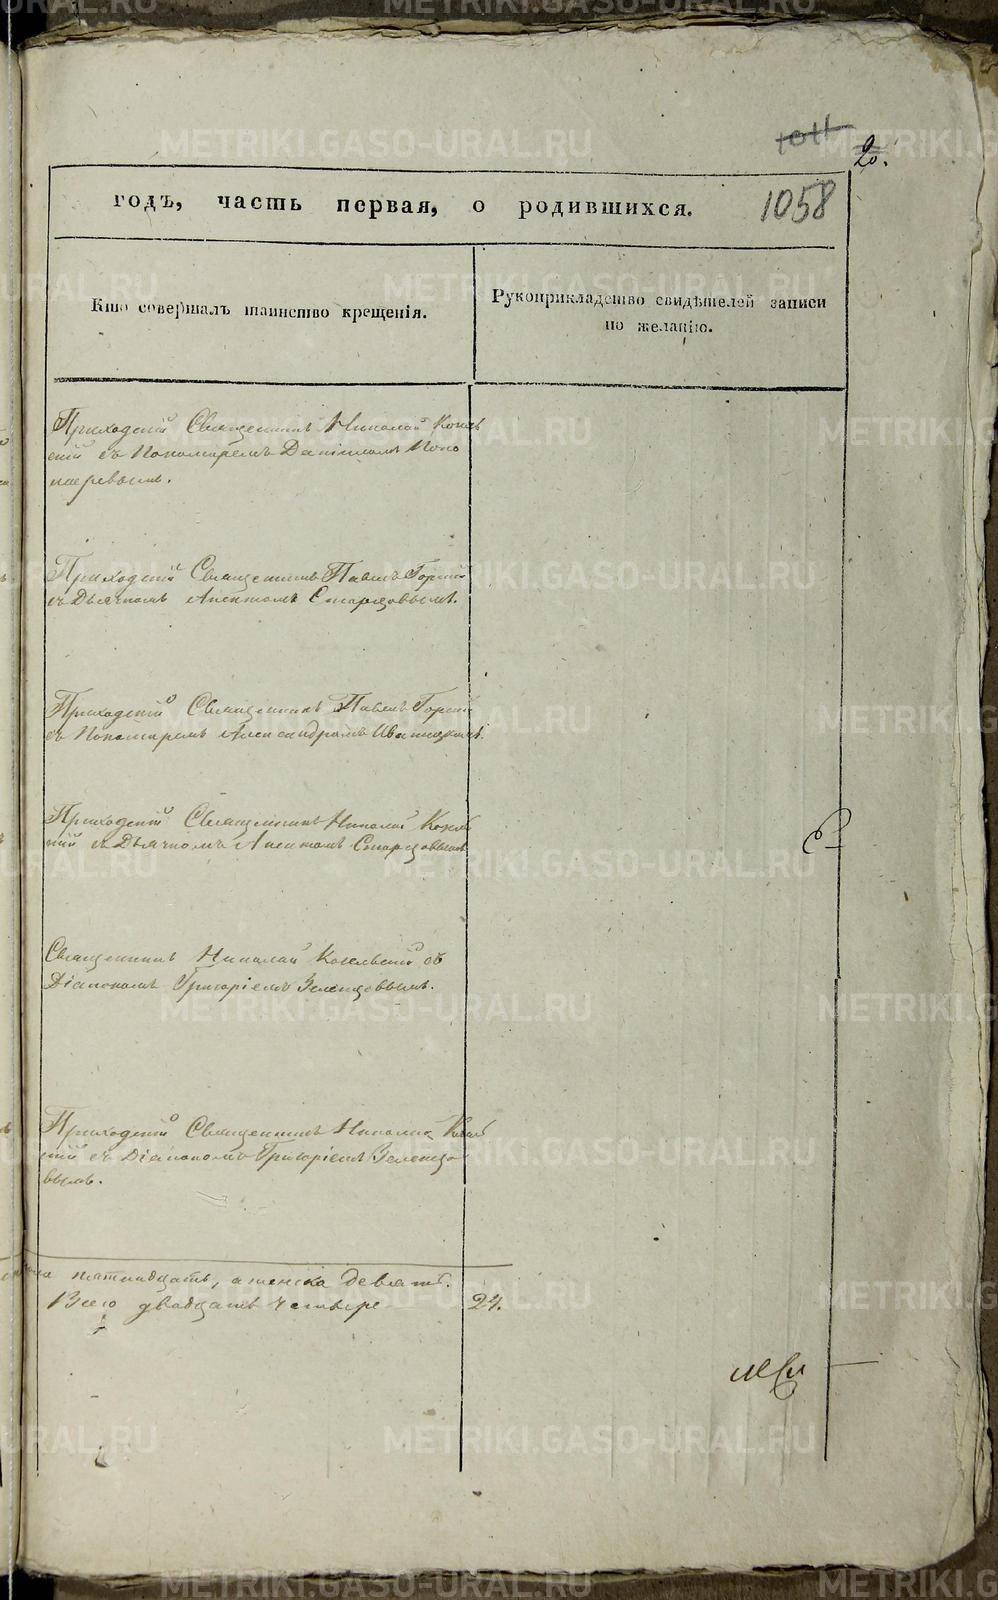 1011
20.
годъ, часть первая, о родившихся.
1058
Кто совершалъ таинство крещенія.
Рукоприкладство свидѣтелей записи
по желанію.
Приходскій Священникъ Николай Козель
скій съ Пономаремъ Даніиломъ
Приходскій Священникъ Павелъ Горскій
съ Дьячкомъ Старцовымъ.
Приходскій Священникъ Павелъ Горскій
съ Пономаремъ Александромъ
Приходскій Священникъ Николай Козель
скій съ Дьячкомъ Старцовымъ
Священникъ Николай Козельскій съ
Діакономъ Григоріемъ Зеленцовымъ.
Приходскій Священникъ Николай Козель
скій съ Діакономъ Григоріемъ Зеленцо
вымъ.
пятнадцать, а женска девять.
Всего двадцать четыре 24.
METRIKI.GASO-URAL.RU